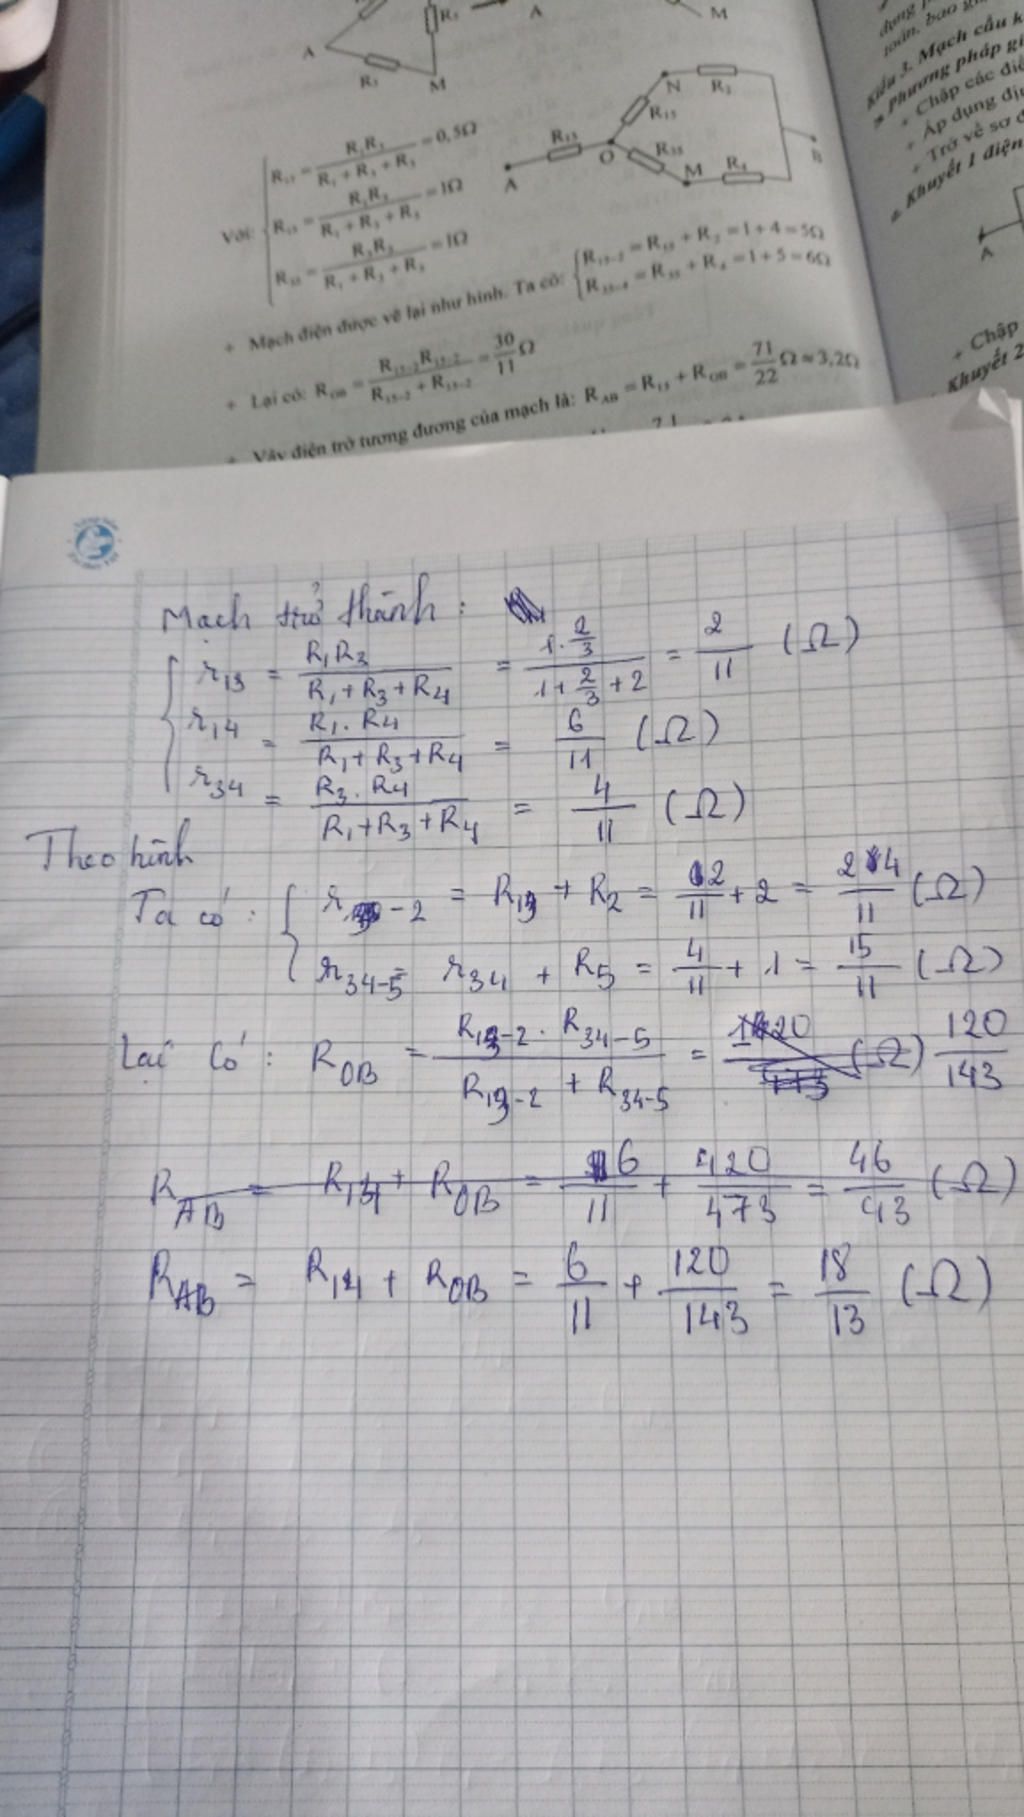 R₅ A M
A
R₁ M
N R₂
R₁₅
R₁₃ O R₃₅ B
A M R₄
Với: R₁₃ = R₁R₃ / (R₁ + R₃ + R₅) = 0,5Ω
R₁₅ = R₁R₅ / (R₁ + R₃ + R₅) = 1Ω
R₃₅ = R₃R₅ / (R₁ + R₃ + R₅) = 1Ω
+ Mạch điện được vẽ lại như hình. Ta có: { R₁₅₋₂ = R₁₅ + R₂ = 1 + 4 = 5Ω
R₃₅₋₄ = R₃₅ + R₄ = 1 + 5 = 6Ω
+ Lại có: R_OB = = 30/11 Ω
+ Vậy điện trở tương đương của mạch là: R_AB = R₁₃ + R_OB = 71/22 Ω ≈ 3,2Ω
Kiểu 3. Mạch cầu k
* Phương pháp gi
+ Chập các điể
+ Áp dụng đị
+ Trở về sơ đ
a. Khuyết 1 điện
A
+ Chập
Khuyết 2
Mạch trở thành :
r₁₃ = R₁R₃ / (R₁ + R₃ + R₄) = (1 · 2/3) / (1 + 2/3 + 2) = 2/11 (Ω)
r₁₄ = R₁ . R₄ / (R₁ + R₃ + R₄) = 6/11 (Ω)
r₃₄ = R₃ . R₄ / (R₁ + R₃ + R₄) = 4/11 (Ω)
Theo hình
Ta có : { r₁₃₋₂ = R₁₃ + R₂ = 2/11 + 2 = 24/11 (Ω)
r₃₄₋₅ = r₃₄ + R₅ = 4/11 + 1 = 15/11 (Ω)
Lại có : R_OB = R₁₃₋₂ . R₃₄₋₅ / (R₁₃₋₂ + R₃₄₋₅) = (Ω) 120/143
R_AB = R₁₄ + R_OB = 6/11 + 420/473 = 46/43 (Ω)
R_AB = R₁₄ + R_OB = 6/11 + 120/143 = 18/13 (Ω)